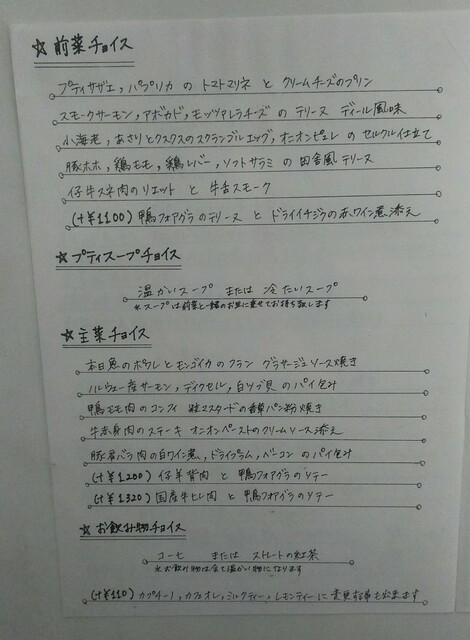 ☆ 前菜チョイス
プティサザエ,パプリカ の トマトマリネ と クリームチーズのプリン
スモークサーモン,アボカド,モッツァレラチーズ の テリーヌ ディール風味
小海老,あさりとクスクスのスクランブルエッグ,オニオンピュレ の セルクル仕立て
豚ホホ,鶏モモ,鶏レバー,ソフトサラミ の 田舎風テリーヌ
仔牛スネ肉のリエット と 牛舌スモーク
(+¥1100) 鴨フォアグラのテリーヌ と ドライイチジクの赤ワイン煮添え
☆ プティスープチョイス
温かいスープ または 冷たいスープ
※スープは前菜と一緒のお皿に乗せてお持ち致します
☆ 主菜チョイス
本日魚のポワレとモンゴイカのフラン グラサージュソース焼き
ノルウェー産サーモン,デュクセル,白ツブ貝 の パイ包み
鴨モモ肉 の コンフィ 粒マスタードの香草パン粉焼き
牛赤身肉のステーキ オニオンペーストのクリームソース添え
豚肩バラ肉の白ワイン煮,ドライプラム,ベーコン の パイ包み
(+¥1200) 仔羊背肉 と 鴨フォアグラのソテー
(+¥1320) 国産牛ヒレ肉 と 鴨フォアグラのソテー
☆ お飲み物チョイス
コーヒー または ストレートの紅茶
※お飲み物は全て温かい物になります
(+¥110) カプチーノ,カフェオレ,ミルクティー,レモンティー に 変更する事も出来ます